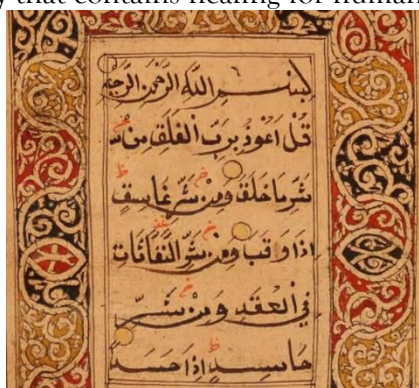 y that contains healing for human
بِسْمِ اللَّهِ الرَّحْمَٰنِ الرَّحِيمِ
قُلْ اَعُوذُ بِرَبِّ الْفَلَقِ مِنْ
شَرِّ مَا خَلَقَ وَمِنْ شَرِّ غَاسِقٍ
اِذَا وَقَبَ وَمِنْ شَرِّ النَّفَّاثَاتِ
فِي الْعُقَدِ وَمِنْ شَرِّ
حَاسِدٍ اِذَا حَسَدَ